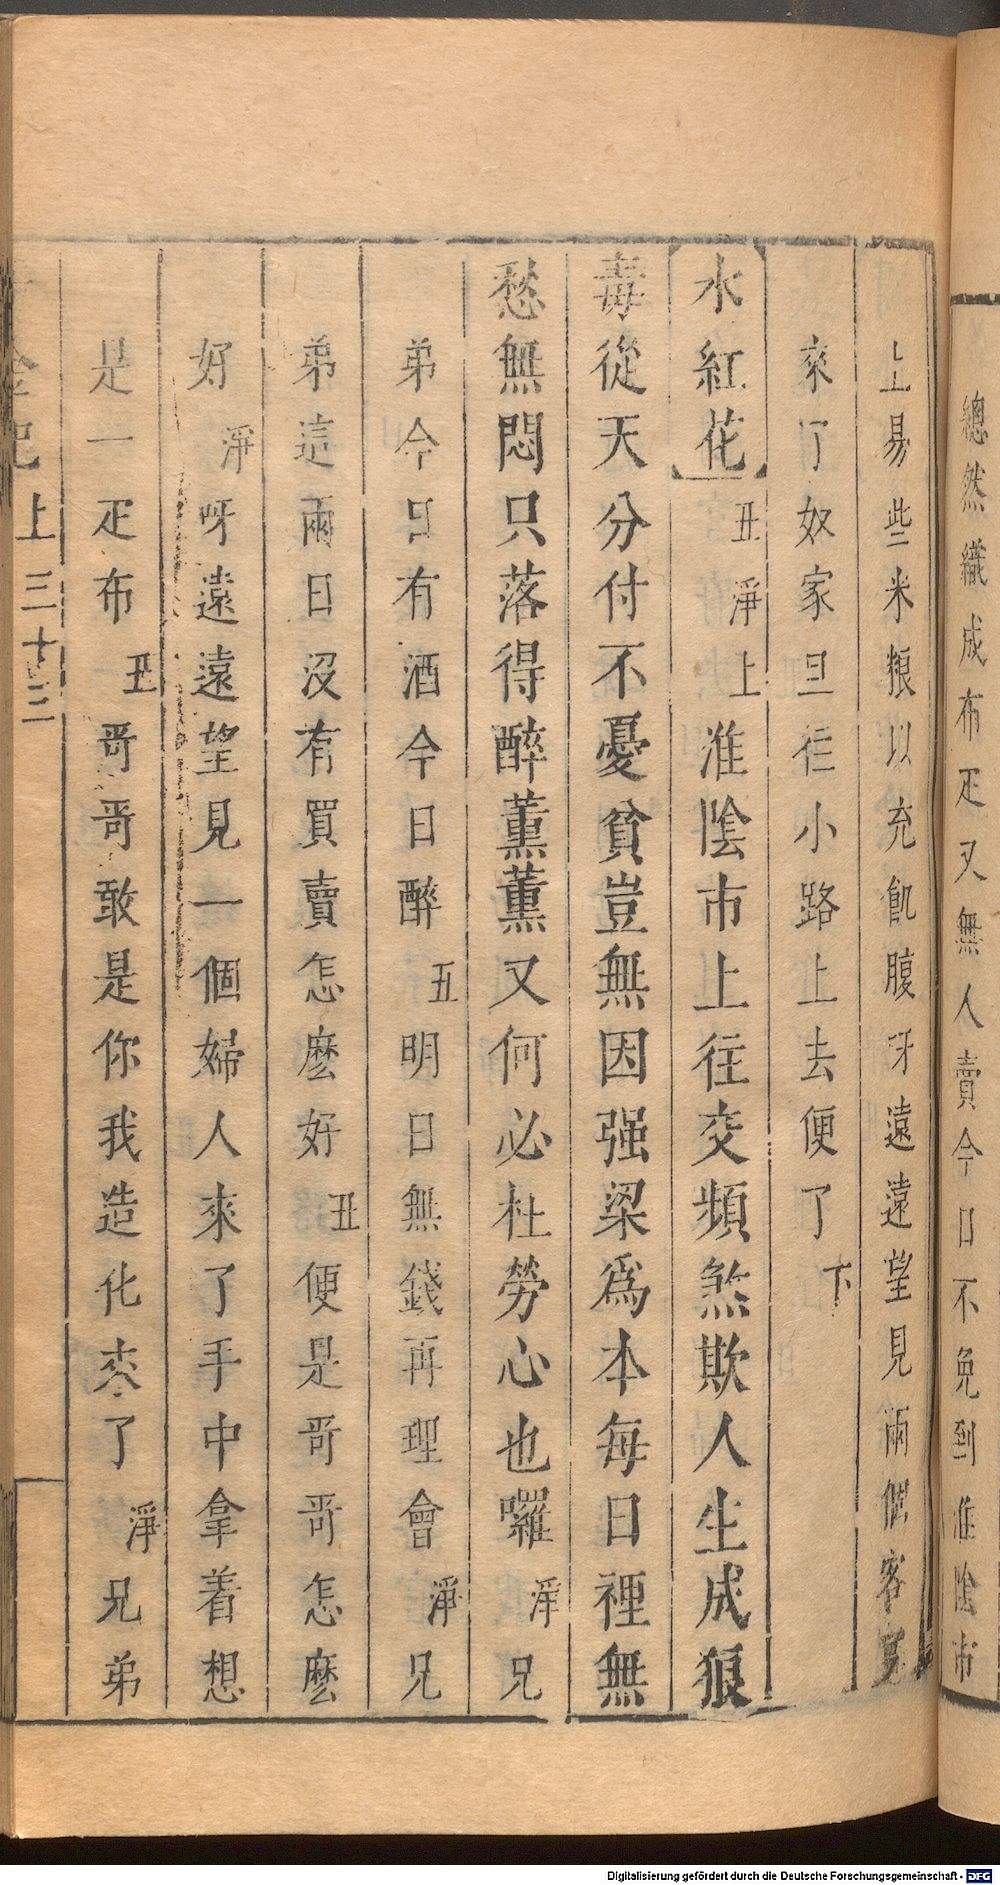 總然織成布疋又無人賣今日不免到淮陰市
上易些米粮以充飢腹呀遠遠望見兩個客
來了奴家旦徃小路上去便了下
【水紅花】丑淨上淮陰市上往交頻煞欺人生成狼
毒從天分付不憂貧豈無因强梁爲本每日裡無
愁無悶只落得醉薰薰又何必杜勞心也囉淨兄
弟今日有酒今日醉丑明日無錢再理會淨兄
弟這兩日沒有買賣怎麽好丑便是哥哥怎麽
好淨呀遠遠望見一個婦人來了手中拿着想
是一疋布丑哥哥敢是你我造化來了淨兄弟
金記上三十二
Digitalisierung gefördert durch die Deutsche Forschungsgemeinschaft - DFG